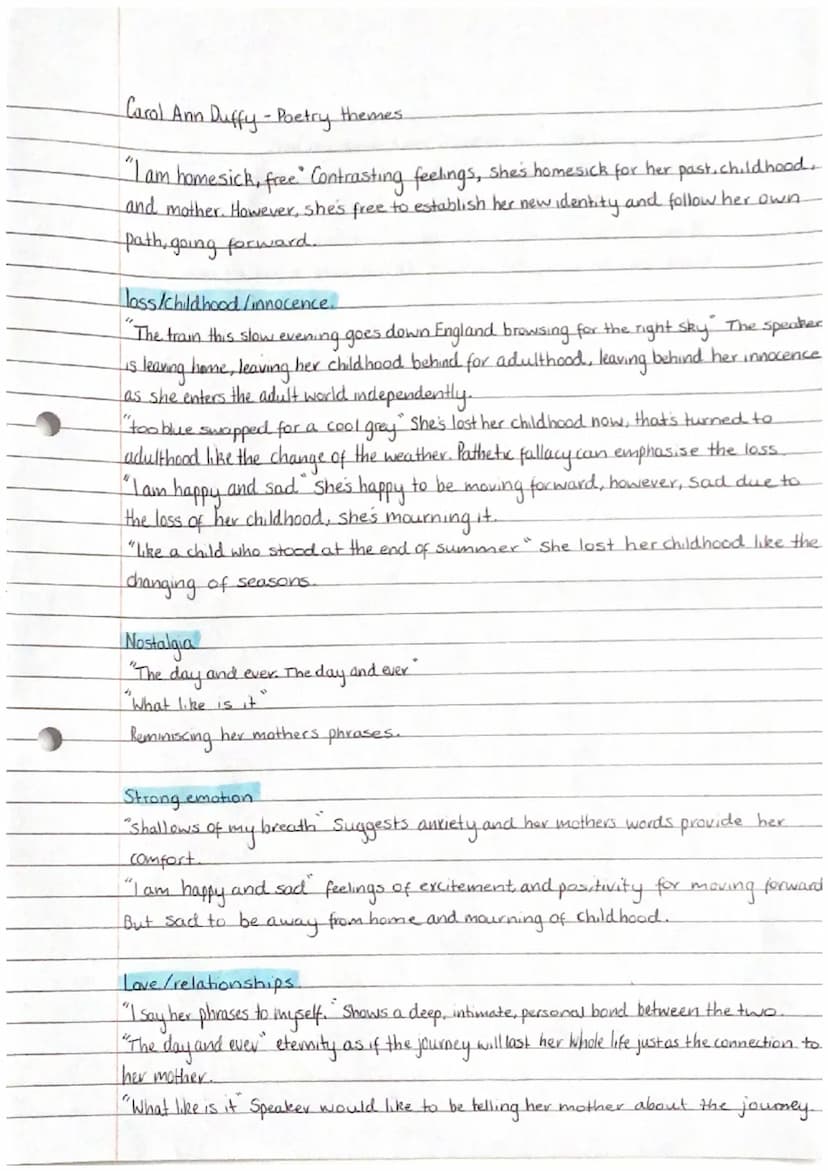 Carol Ann Duffy - Poetry themes
"I am homesick, free" Contrasting feelings, she's homesick for her past, childhood,
and mother. However, she's free to establish her new identity and follow her own
path, going forward.
loss/childhood/innocence.
"The train this slow evening goes down England browsing for the right sky" The speaker
is leaving home, leaving her childhood behind for adulthood, leaving behind her innocence
as she enters the adult world independently.
"too blue swapped for a cool grey" She's lost her childhood now, that's turned to
adulthood like the change of the weather. Pathetic fallacy can emphasise the loss
"I am happy and sad" She's happy to be moving forward, however, sad due to
the loss of her childhood, she's mourning it.
"like a child who stood at the end of summer" She lost her childhood like the
changing of seasons.
Nostalgia
"The day and ever. The day and ever"
"What like is it"
Reminiscing her mothers phrases.
Strong emotion
"shallows of my breath" Suggests anxiety and her mothers words provide her
comfort.
"I am happy and sad" feelings of excitement and positivity for moving forward
But sad to be away from home and mourning of childhood.
Love/relationships
"I say her phrases to myself." Shows a deep, intimate, personal bond between the two.
"The day and ever" eternity as if the journey will last her whole life just as the connection to
her mother.
"What like is it" Speaker would like to be telling her mother about the journey